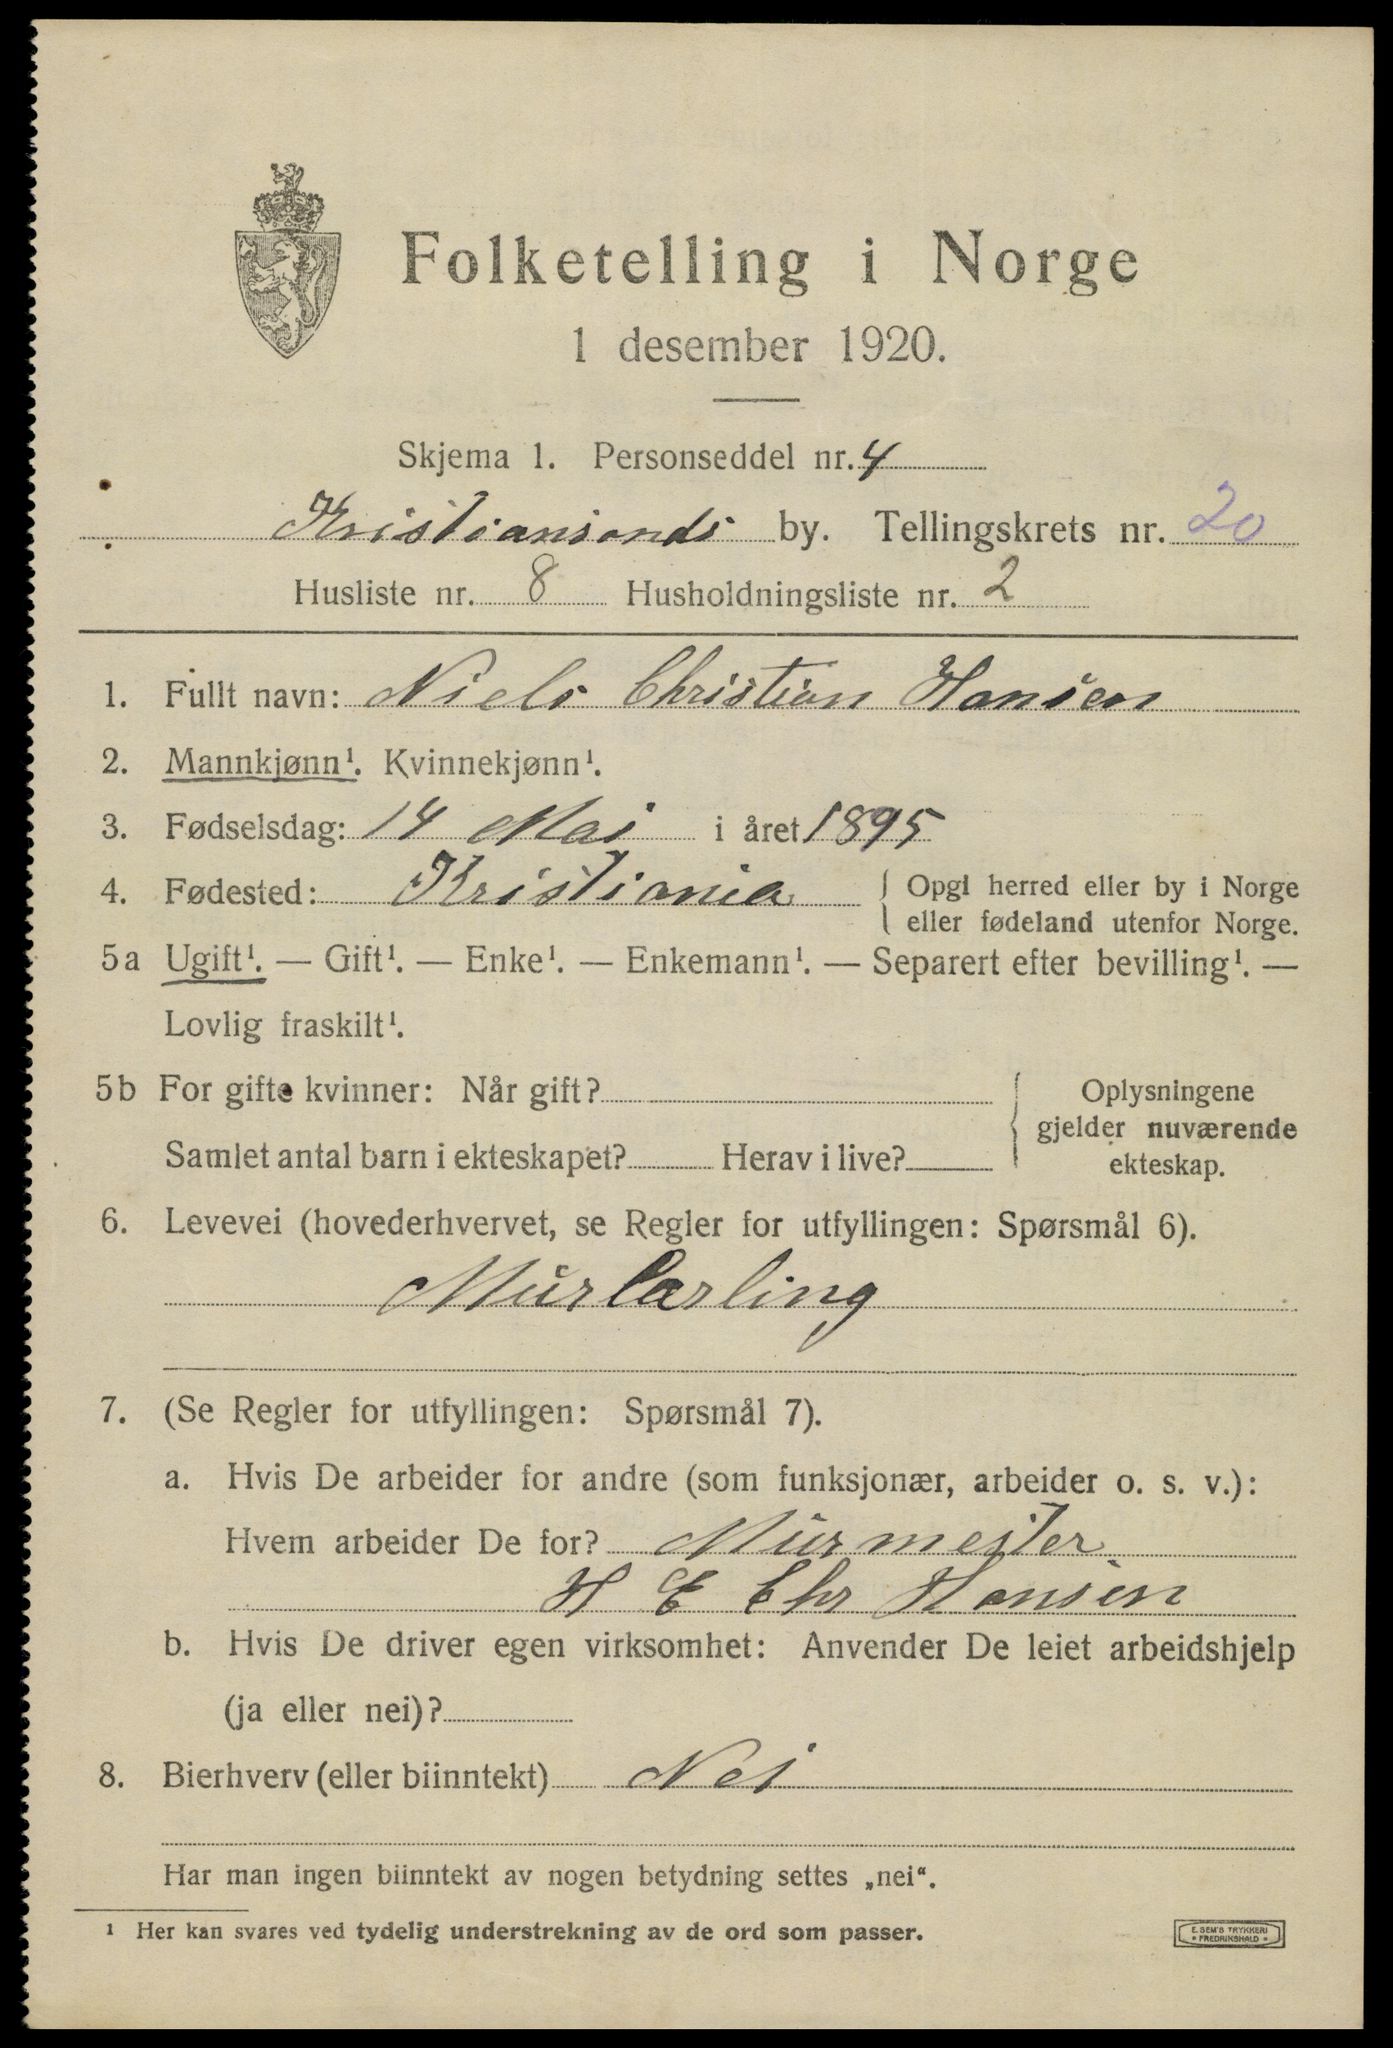 Folketelling i Norge
1 desember 1920.
Skjema 1. Personseddel nr. 4
Kristiansands by. Tellingskrets nr. 20
Husliste nr. 8 Husholdningsliste nr. 2
1. Fullt navn: Niels Christian Hansen
2. Mannkjønn¹. Kvinnekjønn¹.
3. Fødselsdag: 14 Mai i året 1895
4. Fødested: Kristiania { Opgi herred eller by i Norge
eller fødeland utenfor Norge.
5a Ugift¹. — Gift¹. — Enke¹. — Enkemann¹. — Separert efter bevilling¹. —
Lovlig fraskilt¹.
5b For gifte kvinner: Når gift? { Oplysningene
gjelder nuværende
Samlet antal barn i ekteskapet? Herav i live?
ekteskap.
6. Levevei (hovederhvervet, se Regler for utfyllingen: Spørsmål 6).
Murlærling
7. (Se Regler for utfyllingen: Spørsmål 7).
a. Hvis De arbeider for andre (som funksjonær, arbeider o. s. v.):
Hvem arbeider De for? Murmester
H E Chr Hansen
b. Hvis De driver egen virksomhet: Anvender De leiet arbeidshjelp
(ja eller nei)?
8. Bierhverv (eller biinntekt) Nei
Har man ingen biinntekt av nogen betydning settes „nei“.
¹ Her kan svares ved tydelig understrekning av de ord som passer.
E. SEM'S TRYKKERI
* FREDRIKSHALD *